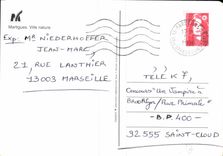 Martigues. Ville nature
Exp: Mr NIEDERHOFFER
JEAN-MARC
21, RUE LANTHIER
13003 MARSEILLE
TÉLÉ K7,
Concours "Un Vampire à
Brooklyn/Rue Primale"
- B.P. 400 -
92 555 SAINT-CLOUD